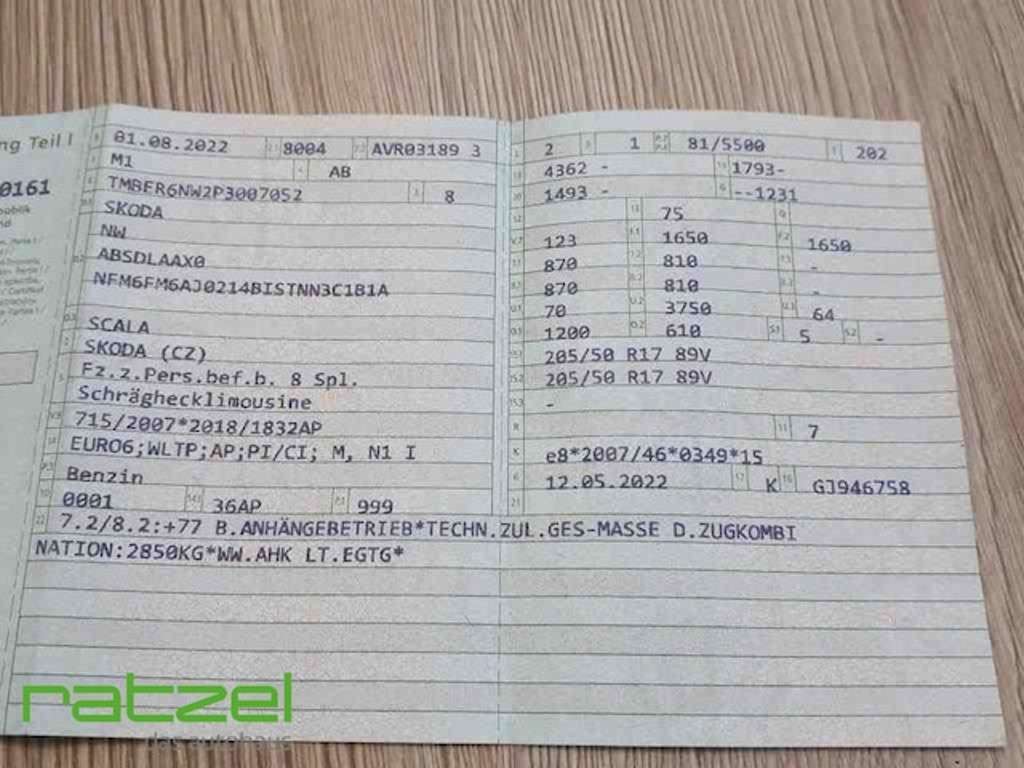 ng Teil I
0161
01.08.2022 8004 AVR03189 3
M1 AB
TMBER6NW2P3007052 8
SKODA
NW
ABSDLAAX0
NFM6FM6AJ0214BISTNN3C1B1A
SCALA
SKODA (CZ)
Fz.z.Pers.bef.b. 8 Spl.
Schräghecklimousine
715/2007*2018/1832AP
EURO6;WLTP;AP;PI/CI; M, N1 I
Benzin
0001 36AP 999
2 1 81/5500 202
4362 - 1793-
1493 - --1231
75
123 1650 1650
870 810 -
870 810 -
70 3750 64
1200 610 5 -
205/50 R17 89V
205/50 R17 89V
-
7
e8*2007/46*0349*15
12.05.2022 K GJ946758
7.2/8.2:+77 B.ANHÄNGEBETRIEB*TECHN.ZUL.GES-MASSE D.ZUGKOMBI
NATION:2850KG*WW.AHK LT.EGTG*
ratzel
das autohaus